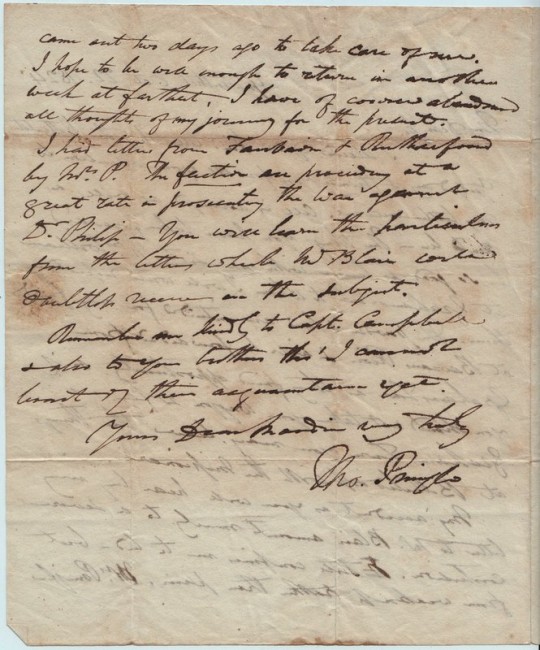 came out two days ago to take care of me.
I hope to be well enough to return in another
week at farthest. I have of course abandoned
all thoughts of my journey for the present.
I had letters from Fairbairn & Rutherfoord
by Mrs P. The faction are proceeding at a
great rate in prosecuting the war against
Dr. Philip – You will learn the particulars
from the letters which Mr Blair will
doubtless receive on the subject.
Remember me kindly to Capt. Campbell
& also to your brothers tho' I cannot
boast of their acquaintance yet.
Yours Dear very truly
Tho. Pringle